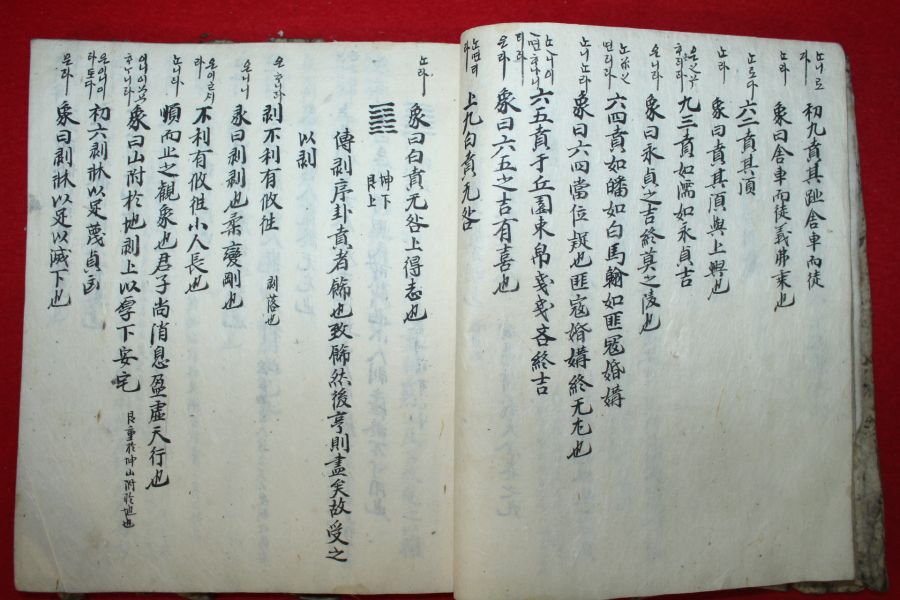 初九賁其趾舍車而徒
노라 象曰舍車而徒義弗乘也
노다 六二賁其須
노라 象曰賁其須與上興也
九三賁如濡如永貞吉
으니라 象曰永貞之吉終莫之陵也
六四賁如皤如白馬翰如匪寇婚媾
노니 노라 象曰六四當位疑也匪寇婚媾終无尤也
六五賁于丘園束帛戔戔吝終吉
으라 象曰六五之吉有喜也
上九白賁无咎
노라 象曰白賁无咎上得志也
䷖ 坤下 艮上
傳剥序卦賁者飾也致飾然後亨則盡矣故受之
以剥
剥不利有攸徃 剥落也
으니 彖曰剥剥也柔變剛也
不利有攸徃小人長也
노니라 順而止之觀象也君子尚消息盈虛天行也
象曰山附於地剥上以厚下安宅 艮重於坤山附於地也
初六剥牀以足蔑貞凶
으라 象曰剥牀以足以滅下也